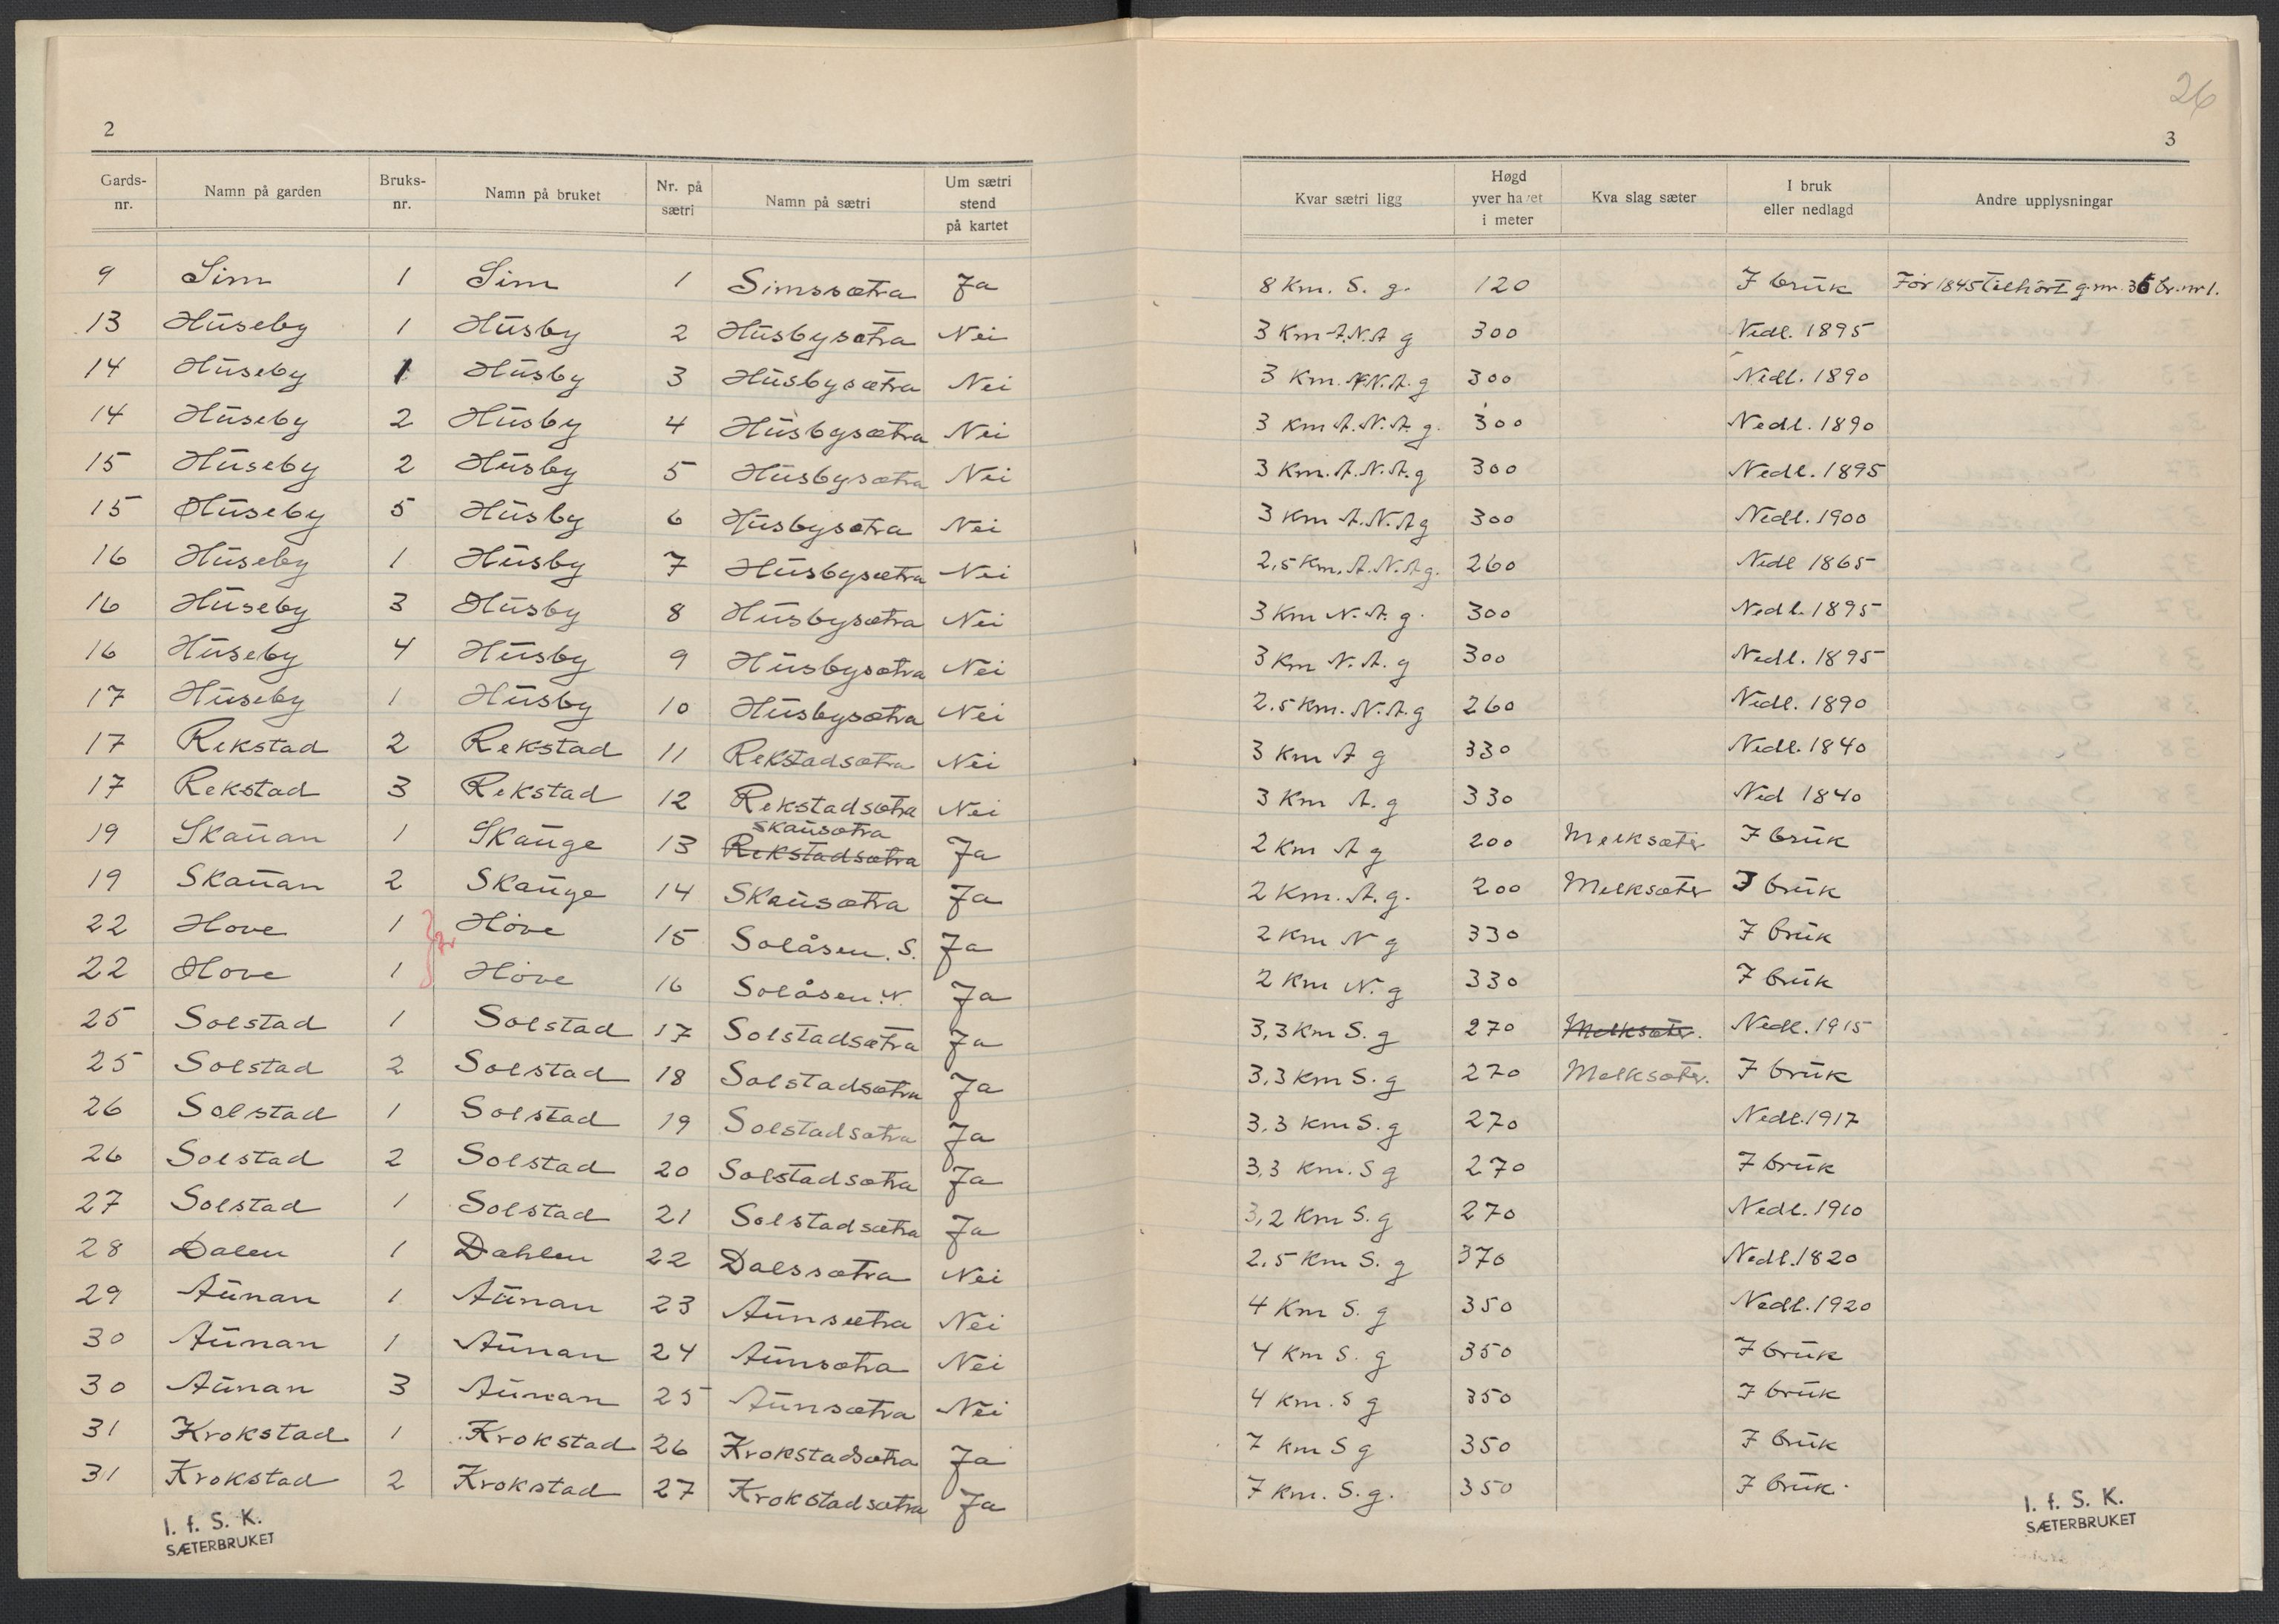 26
2
3
Gards-nr. Namn på garden Bruks-nr. Namn på bruket Nr. på sætri Namn på sætri Um sætri stend på kartet Kvar sætri ligg Høgd yver havet i meter Kva slag sæter I bruk eller nedlagd Andre upplysningar
9 Sim 1 Sim 1 Simssætra Ja 8 Km. S. g. 120 I brük Før 1845 tilhört g.nr. 36 br.nr 1.
13 Hüseby 1 Hüsby 2 Hüsbysætra Nei 3 Km A.N.A g 300 Nedl. 1895
14 Hüseby 1 Hüsby 3 Hüsbysætra Nei 3 Km. A.N.A. g 300 Nedl. 1890
14 Hüseby 2 Hüsby 4 Hüsbysætra Nei 3 Km A.N.A. g. 300 Nedl. 1890
15 Hüseby 2 Hüsby 5 Hüsbysætra Nei 3 Km. A.N.A. g 300 Nedl. 1895
15 Hüseby 5 Hüsby 6 Hüsbysætra Nei 3 Km A.N.A g 300 Nedl. 1900
16 Hüseby 1 Hüsby 7 Hüsbysætra Nei 2,5 Km. A.N.A g. 260 Nedl 1865
16 Hüseby 3 Hüsby 8 Hüsbysætra Nei 3 Km N.A. g. 300 Nedl. 1895
16 Hüseby 4 Hüsby 9 Hüsbysætra Nei 3 Km N.A. g 300 Nedl. 1895
17 Hüseby 1 Hüsby 10 Hüsbysætra Nei 2.5 Km. N.A. g 260 Nedl. 1890
17 Rekstad 2 Rekstad 11 Rekstadsætra Nei 3 Km A g 330 Nedl. 1840
17 Rekstad 3 Rekstad 12 Rekstadsætra Nei 3 Km A. g 330 Ned 1840
Skaüsætra
19 Skaüan 1 Skaüge 13 Rekstadsætra Ja 2 Km A g 200 Melksæter I brük
19 Skaüan 2 Skaüge 14 Skaüsætra Ja 2 Km. A. g. 200 Melksæter I brük
22 Hove 1 Höve 15 Solåsen. S. Ja 2 Km N g 330 I brük
22 Hove 1 Höve 16 Solåsen. N. Ja 2 Km N. g 330 I brük
25 Solstad 1 Solstad 17 Solstadsætra Ja 3,3 Km S. g 270 Melksæter. Nedl. 1915
25 Solstad 2 Solstad 18 Solstadsætra Ja 3,3 Km S. g 270 Melksæter. I brük
26 Solstad 1 Solstad 19 Solstadsætra Ja 3,3 Km S. g 270 Nedl. 1917
26 Solstad 2 Solstad 20 Solstadsætra Ja 3,3 Km. S g 270 I brük
27 Solstad 1 Solstad 21 Solstadsætra Ja 3,2 Km S. g 270 Nedl. 1910
28 Dalen 1 Dahlen 22 Dalssætra Nei 2,5 Km S. g 370 Nedl. 1820
29 Aünan 1 Aünan 23 Aünsætra Nei 4 Km S. g 350 Nedl. 1920
30 Aünan 1 Aünan 24 Aünsætra Nei 4 Km S. g 350 I brük
30 Aünan 3 Aünan 25 Aünsætra Nei 4 Km. S g 350 I brük
31 Krokstad 1 Krokstad 26 Krokstadsætra Ja 7 Km S g 350 I brük
31 Krokstad 2 Krokstad 27 Krokstadsætra Ja 7 Km. S. g. 350 I brük.
I. f. S. K.
SÆTERBRUKET
I. f. S. K.
SÆTERBRUKET